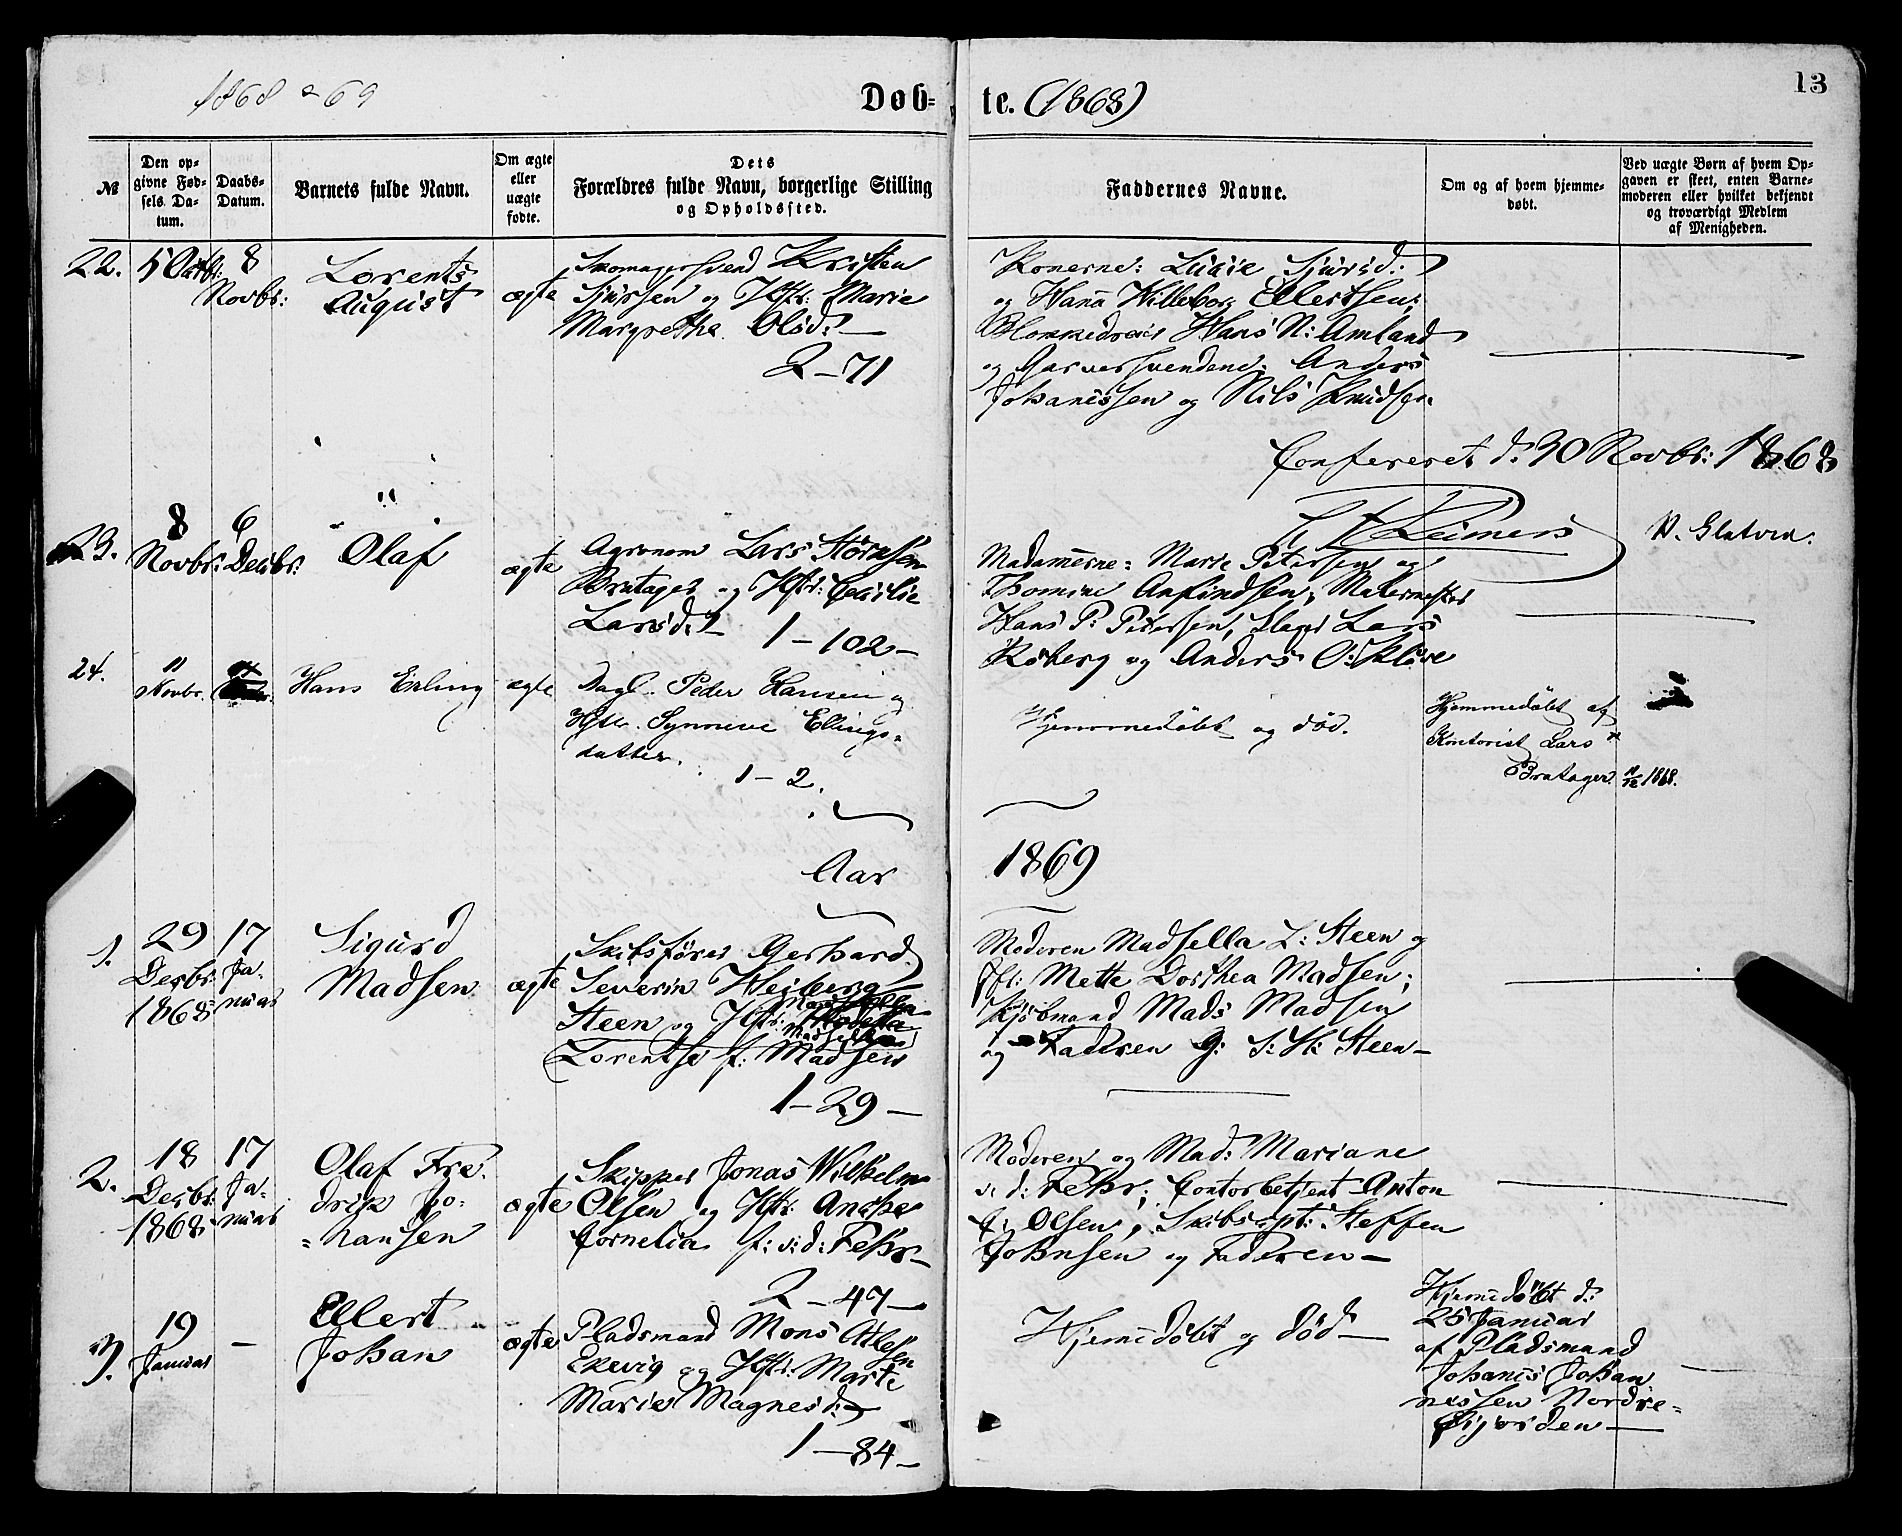 1868 & 69
Døb-
te. (1868)
13
№
Den op-
givne Fød-
sels Da-
tum.
Daabs-
Datum.
Barnets fulde Navn.
Om ægte
eller
uægte
fødte.
Dets
Forældres fulde Navn, borgerlige Stilling
og Opholdssted.
Faddernes Navne.
Om og af hvem hjemme-
døbt.
Ved uægte Børn af hvem Op-
gaven er skeet, enten Barne-
moderen eller hvilket bekjendt
og troværdigt Medlem
af Menigheden.
22.
8
Novbr:
Lorents
August
ægte
Skomagersvend Kristen
Sjursen og Hstr: Marie
Margretha Olsd:
2-71
Konerne: Lucie Sjursd:
og Hanna Willeborg Ellertsen;
Hans N: Amland
og Garversvendene: Anders
Johanessen og Nils Knudsen
Confereret d. 30 Novbr: 1868
Reimers
23.
8
Novbr:
6
Decbr:
Olaf
ægte
Agronom Lars
Bratager og Hstr: Cecilie
Larsd:
1-102-
Madamerne: Marie Petersen og
Thomine Anfindsen; Malermester
Hans P: Petersen, Lars
og Anders O:
24.
11
Novbr.
Hans Erling
ægte
Dagl. Peder Hansen og
Hstr. Synneve Ellings-
datter.
1-2.
Hjemmedøbt og død.
Hjemmedøbt af
Kontorist Lars
Bratager 11/12 1868.
Aar
1869
1.
29
Decbr:
1868
17
Ja-
nuar
Sigurd
Madsen
ægte
Skibsfører Gerhard
Severin Heiberg
Steen og Hstr:
Lorentse f: Madsen
1-29-
Moderen Madsella L: Steen og
Jfr: Mette Dorthea Madsen;
Kjøbmand Mads Madsen
og Faderen G: S: H: Steen-
2.
18
Decbr:
1868
17
Ja-
nuar
Olaf Fre-
drik Jo-
hansen
ægte
Skipper Jonas Wilhelm
Olsen og Hstr: Anche
Cornelia f: v: d: Fehr-
2-47-
Moderen og Mad: Mariane
v: d: Fehr; Contorbetjent Anton
C: Olsen; Skibscpt: Steffen
Johnsen og Faderen-
3.
19
Januar
-
Ellert
Johan
ægte
Pladsmand Mons Atlesen
Ekevig og Hstr: Marte
Marie Magnesd:
1-84-
Hjemedøbt og død-
Hjemedøbt d:
25 Januar
af Pladsmand
Johanes Johan
nessen Nordre-